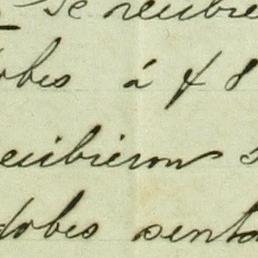 Se recibie
obes á $ 8
ecibieron s
dobes senta